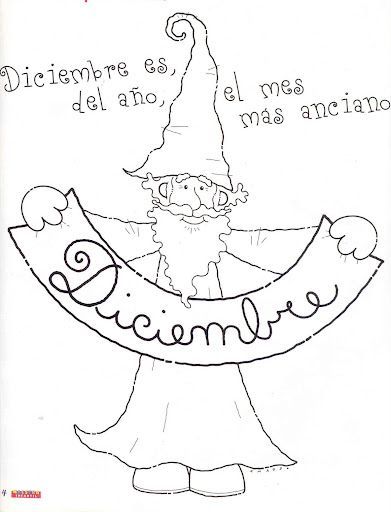 Diciembre es,
del año,
el mes
más anciano
Diciembre
4